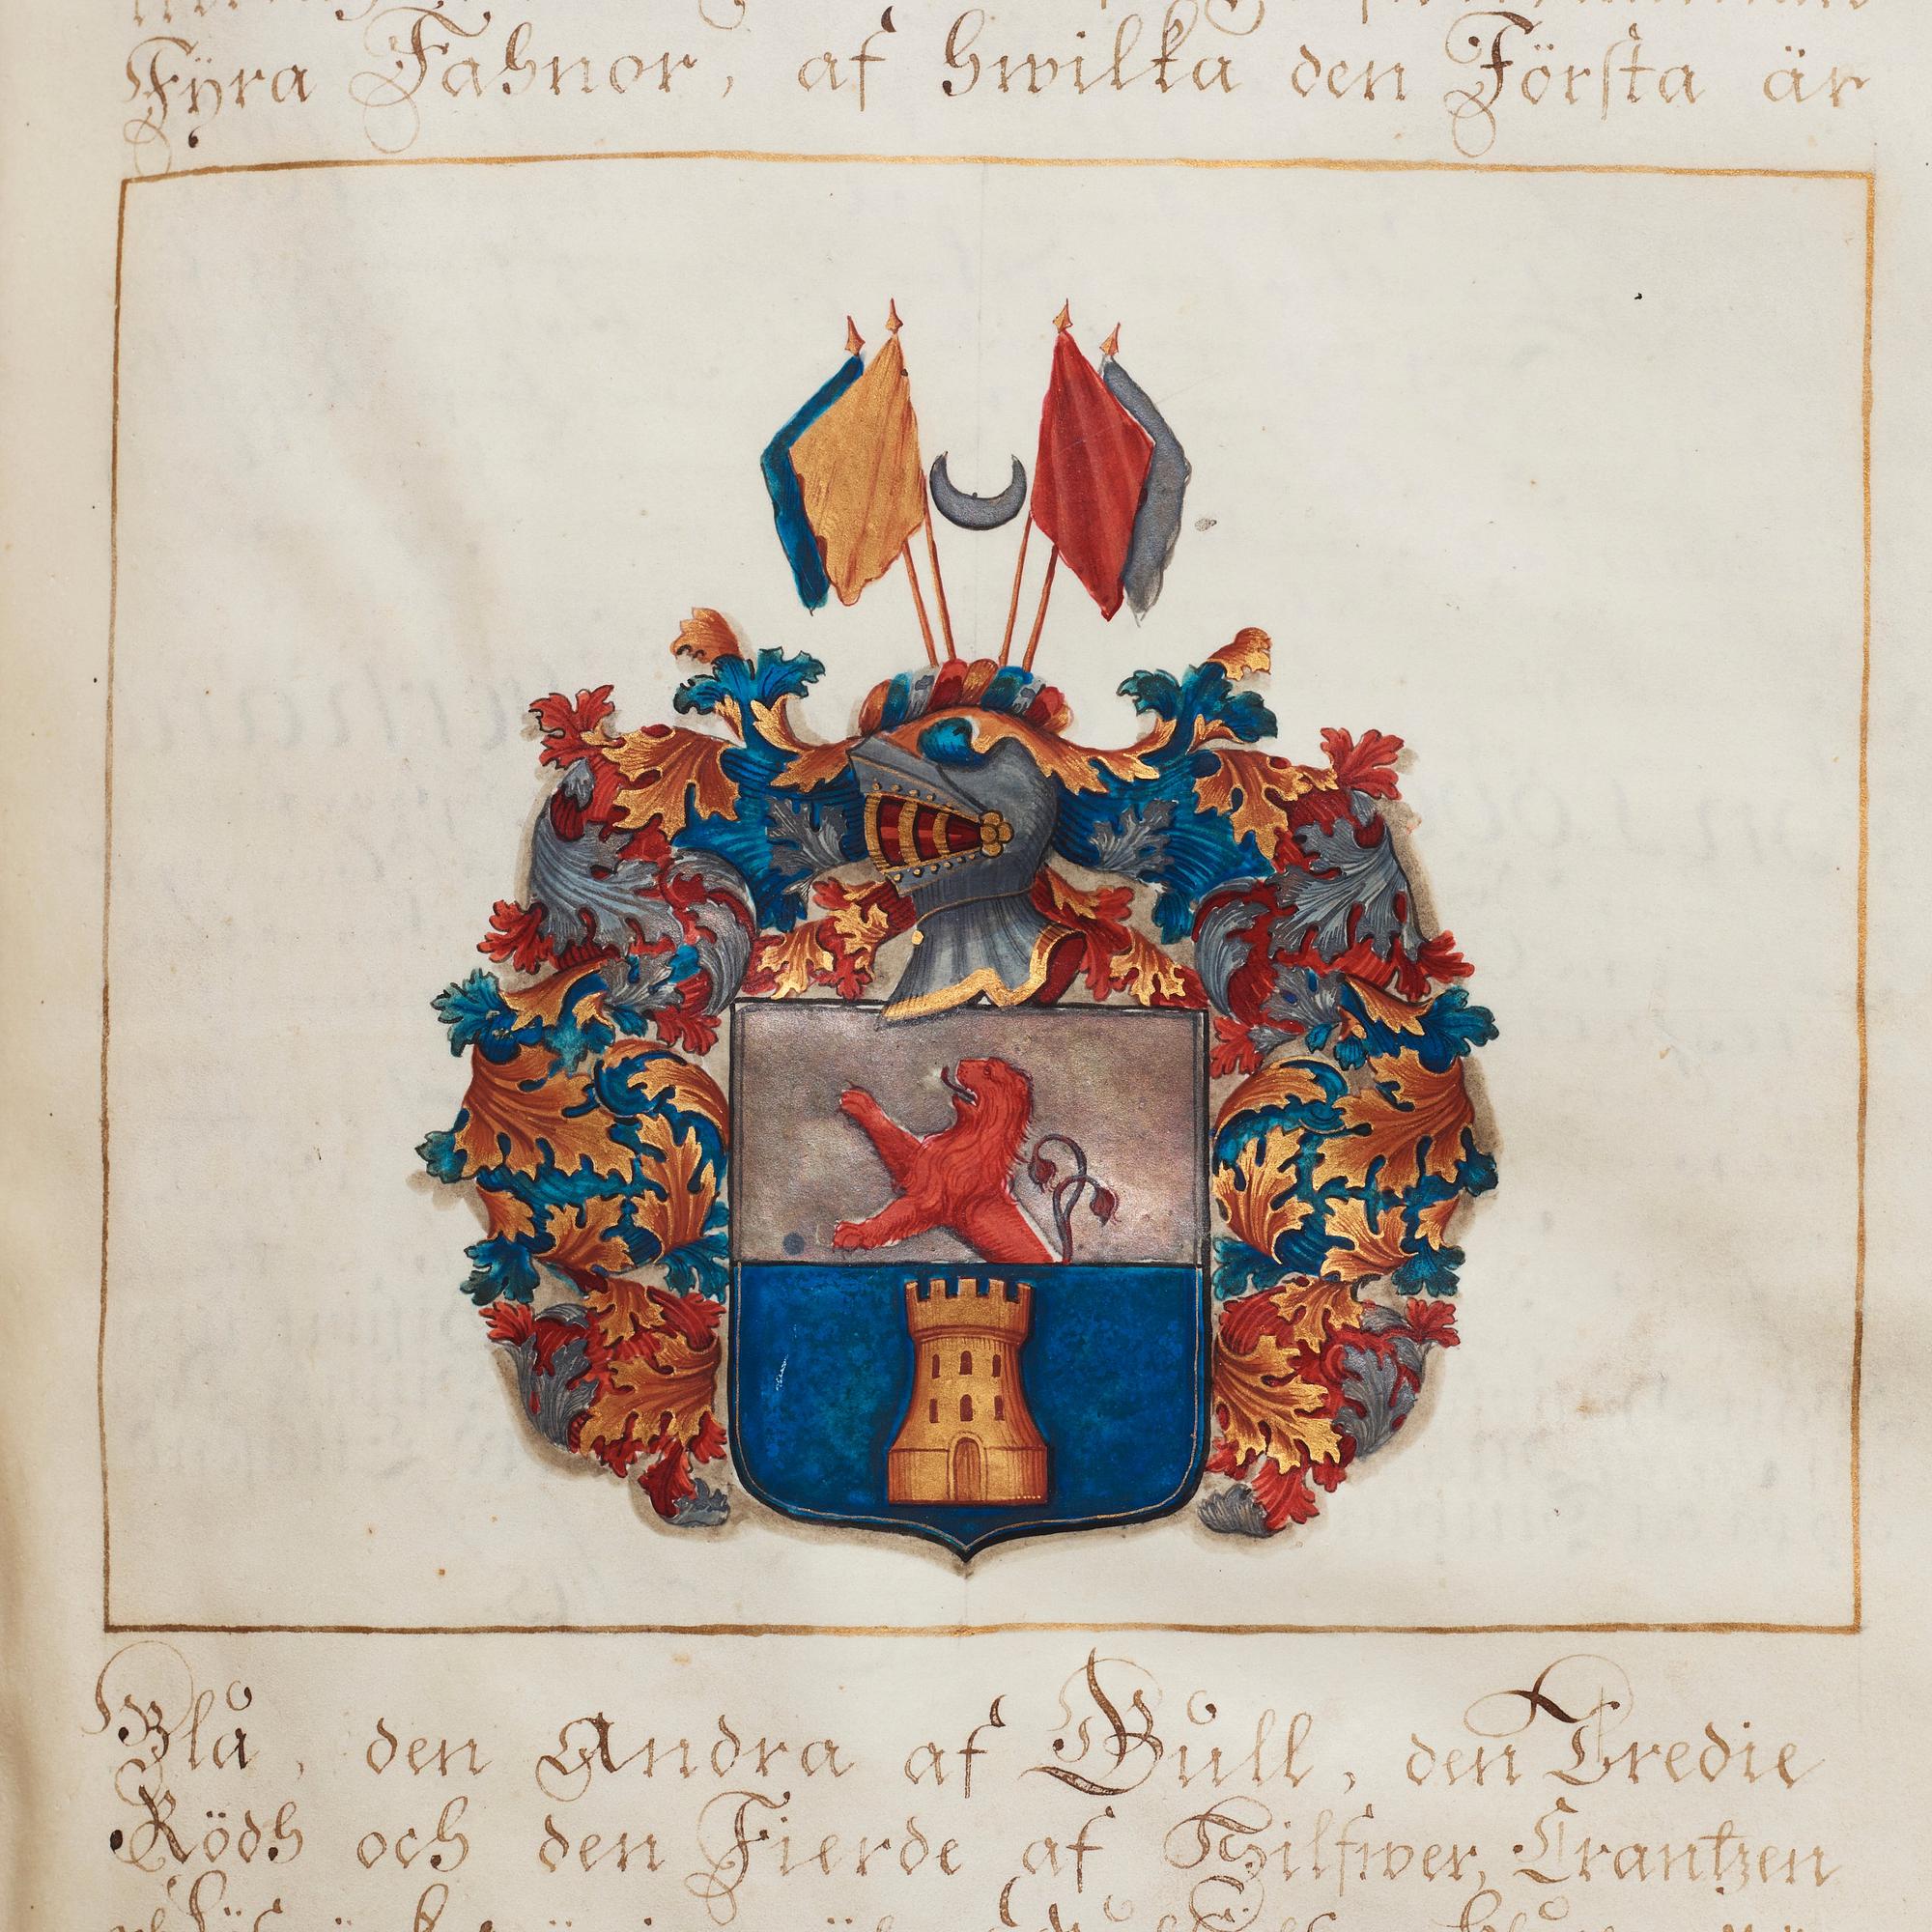 Fÿra Fahnor, af hwilka den Första är
Blå, den Andra af Gull, den Tredie
Rödh och den Fierde af Silfwer, Crantzen